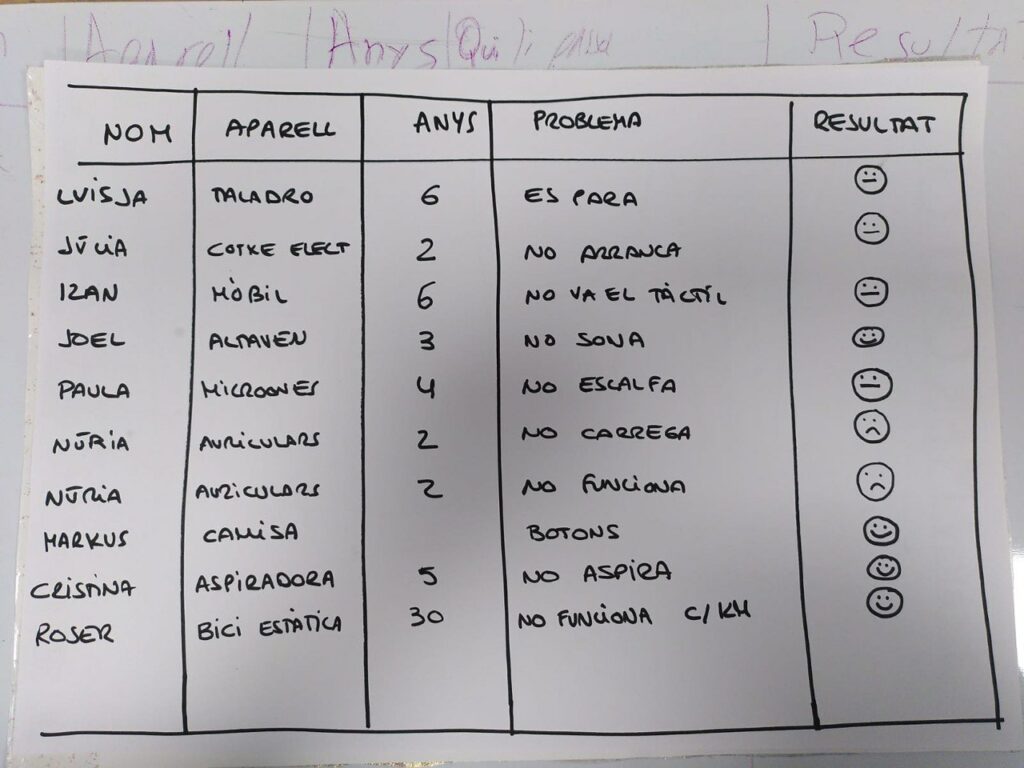 Aparell Anys Qui li passa Resulta
NOM APARELL ANYS PROBLEMA RESULTAT
LUISJA TALADRO 6 ES PARA
JÚLIA COTXE ELECT 2 NO ARRANCA
IZAN MÒBIL 6 NO VA EL TÀCTIL
JOEL ALTAVEU 3 NO SONA
PAULA MICROONES 4 NO ESCALFA
NÚRIA AURICULARS 2 NO CARREGA
NÚRIA AURICULARS 2 NO FUNCIONA
MARKUS CAMISA BOTONS
CRISTINA ASPIRADORA 5 NO ASPIRA
ROSER BICI ESTÀTICA 30 NO FUNCIONA C/KM